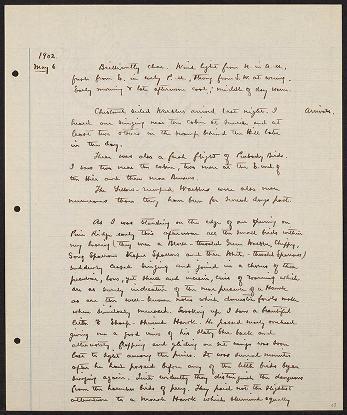 1902
May 6 Brilliantly clear. Wind light from N. in A.M.,
fresh from E. in early P.M., strong from S.W. at evening.
Early morning & late afternoon cool; middle of day warm.
Chestnut-sided Warbler arrived last night. I Arrivals.
heard one singing near the cabin at sunrise and at
least two others in the swamp behind the Hill later
in the day.
There was also a fresh flight of Peabody Birds.
I saw two near the cabin, two more at the E. end of
the Hill and three near Bensens
The Yellow-rumped Warblers were also more
numerous than they have been for several days past.
As I was standing on the edge of an opening on
Pine Ridge early this afternoon all the small birds within
my hearing (they were a Black-throated Green Warbler, Chippy,
Song Sparrow and three White-throated Sparrows)
suddenly ceased singing and joined in a chorus of those
peculiar, low, yet shrill and incisive cries of warning which
are as surely indicative of the near presence of a Hawk
as are the well-known notes which domestic fowls make
when similarly menaced. Looking up, I saw a beautiful
little Sharp-shinned Hawk. He passed nearly overhead
giving me a good view of his slaty blue back and
alternately flapping and gliding on set wings was soon
lost to sight among the pines. It was several minutes
after he had passed before any of the little birds began
singing again. Quite evidently they distinguish the dangerous
from the harmless birds of prey. They paid not the slightest
attention to a Marsh Hawk which skimmed